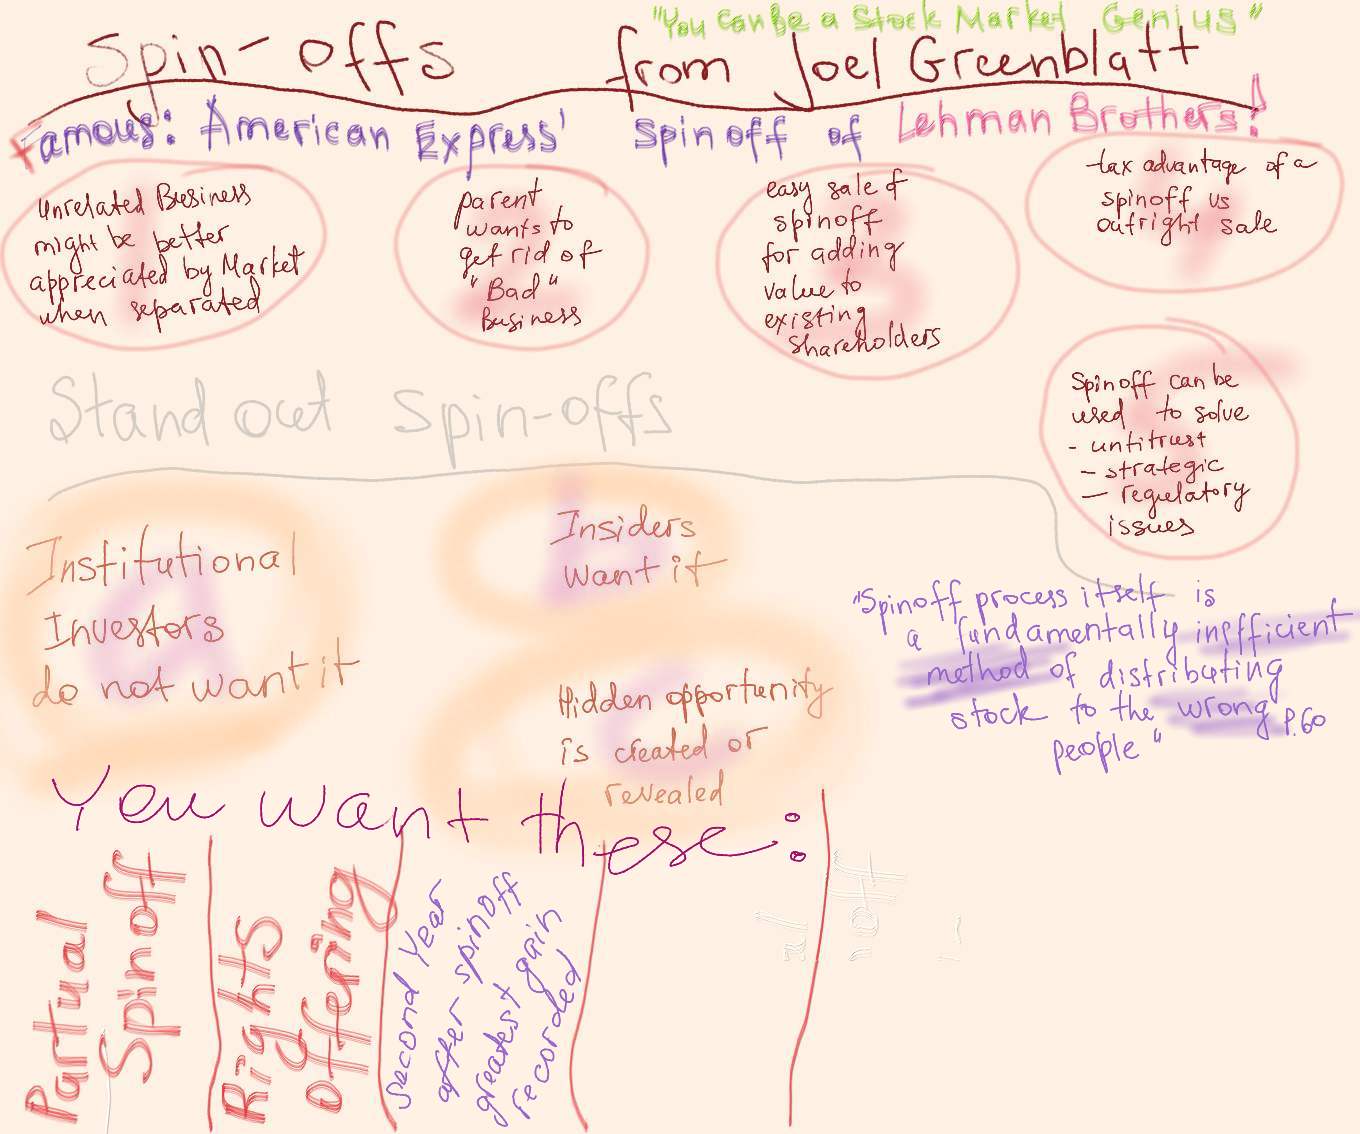 "You can be a Stock Market Genius"
Spin-offs from Joel Greenblatt
Famous: American Express' spinoff of Lehman Brothers!
1
Unrelated Business
might be better
appreciated by Market
when separated
2
parent
wants to
get rid of
"Bad"
Business
3
easy sale of
spinoff
for adding
value to
existing
shareholders
4
tax advantage of a
spinoff vs
outright sale
5
Spinoff can be
used to solve
- untitrust
- strategic
- regulatory
issues
Stand out spin-offs
a
Institutional
Investors
do not want it
b
Insiders
want it
c
Hidden opportunity
is created or
revealed
"Spinoff process itself is
a fundamentally inefficient
method of distributing
stock to the wrong
people" P.60
You want these:
Partual
Spinoff
Rights
Offering
Second Year
after spinoff
greatest gain
recorded